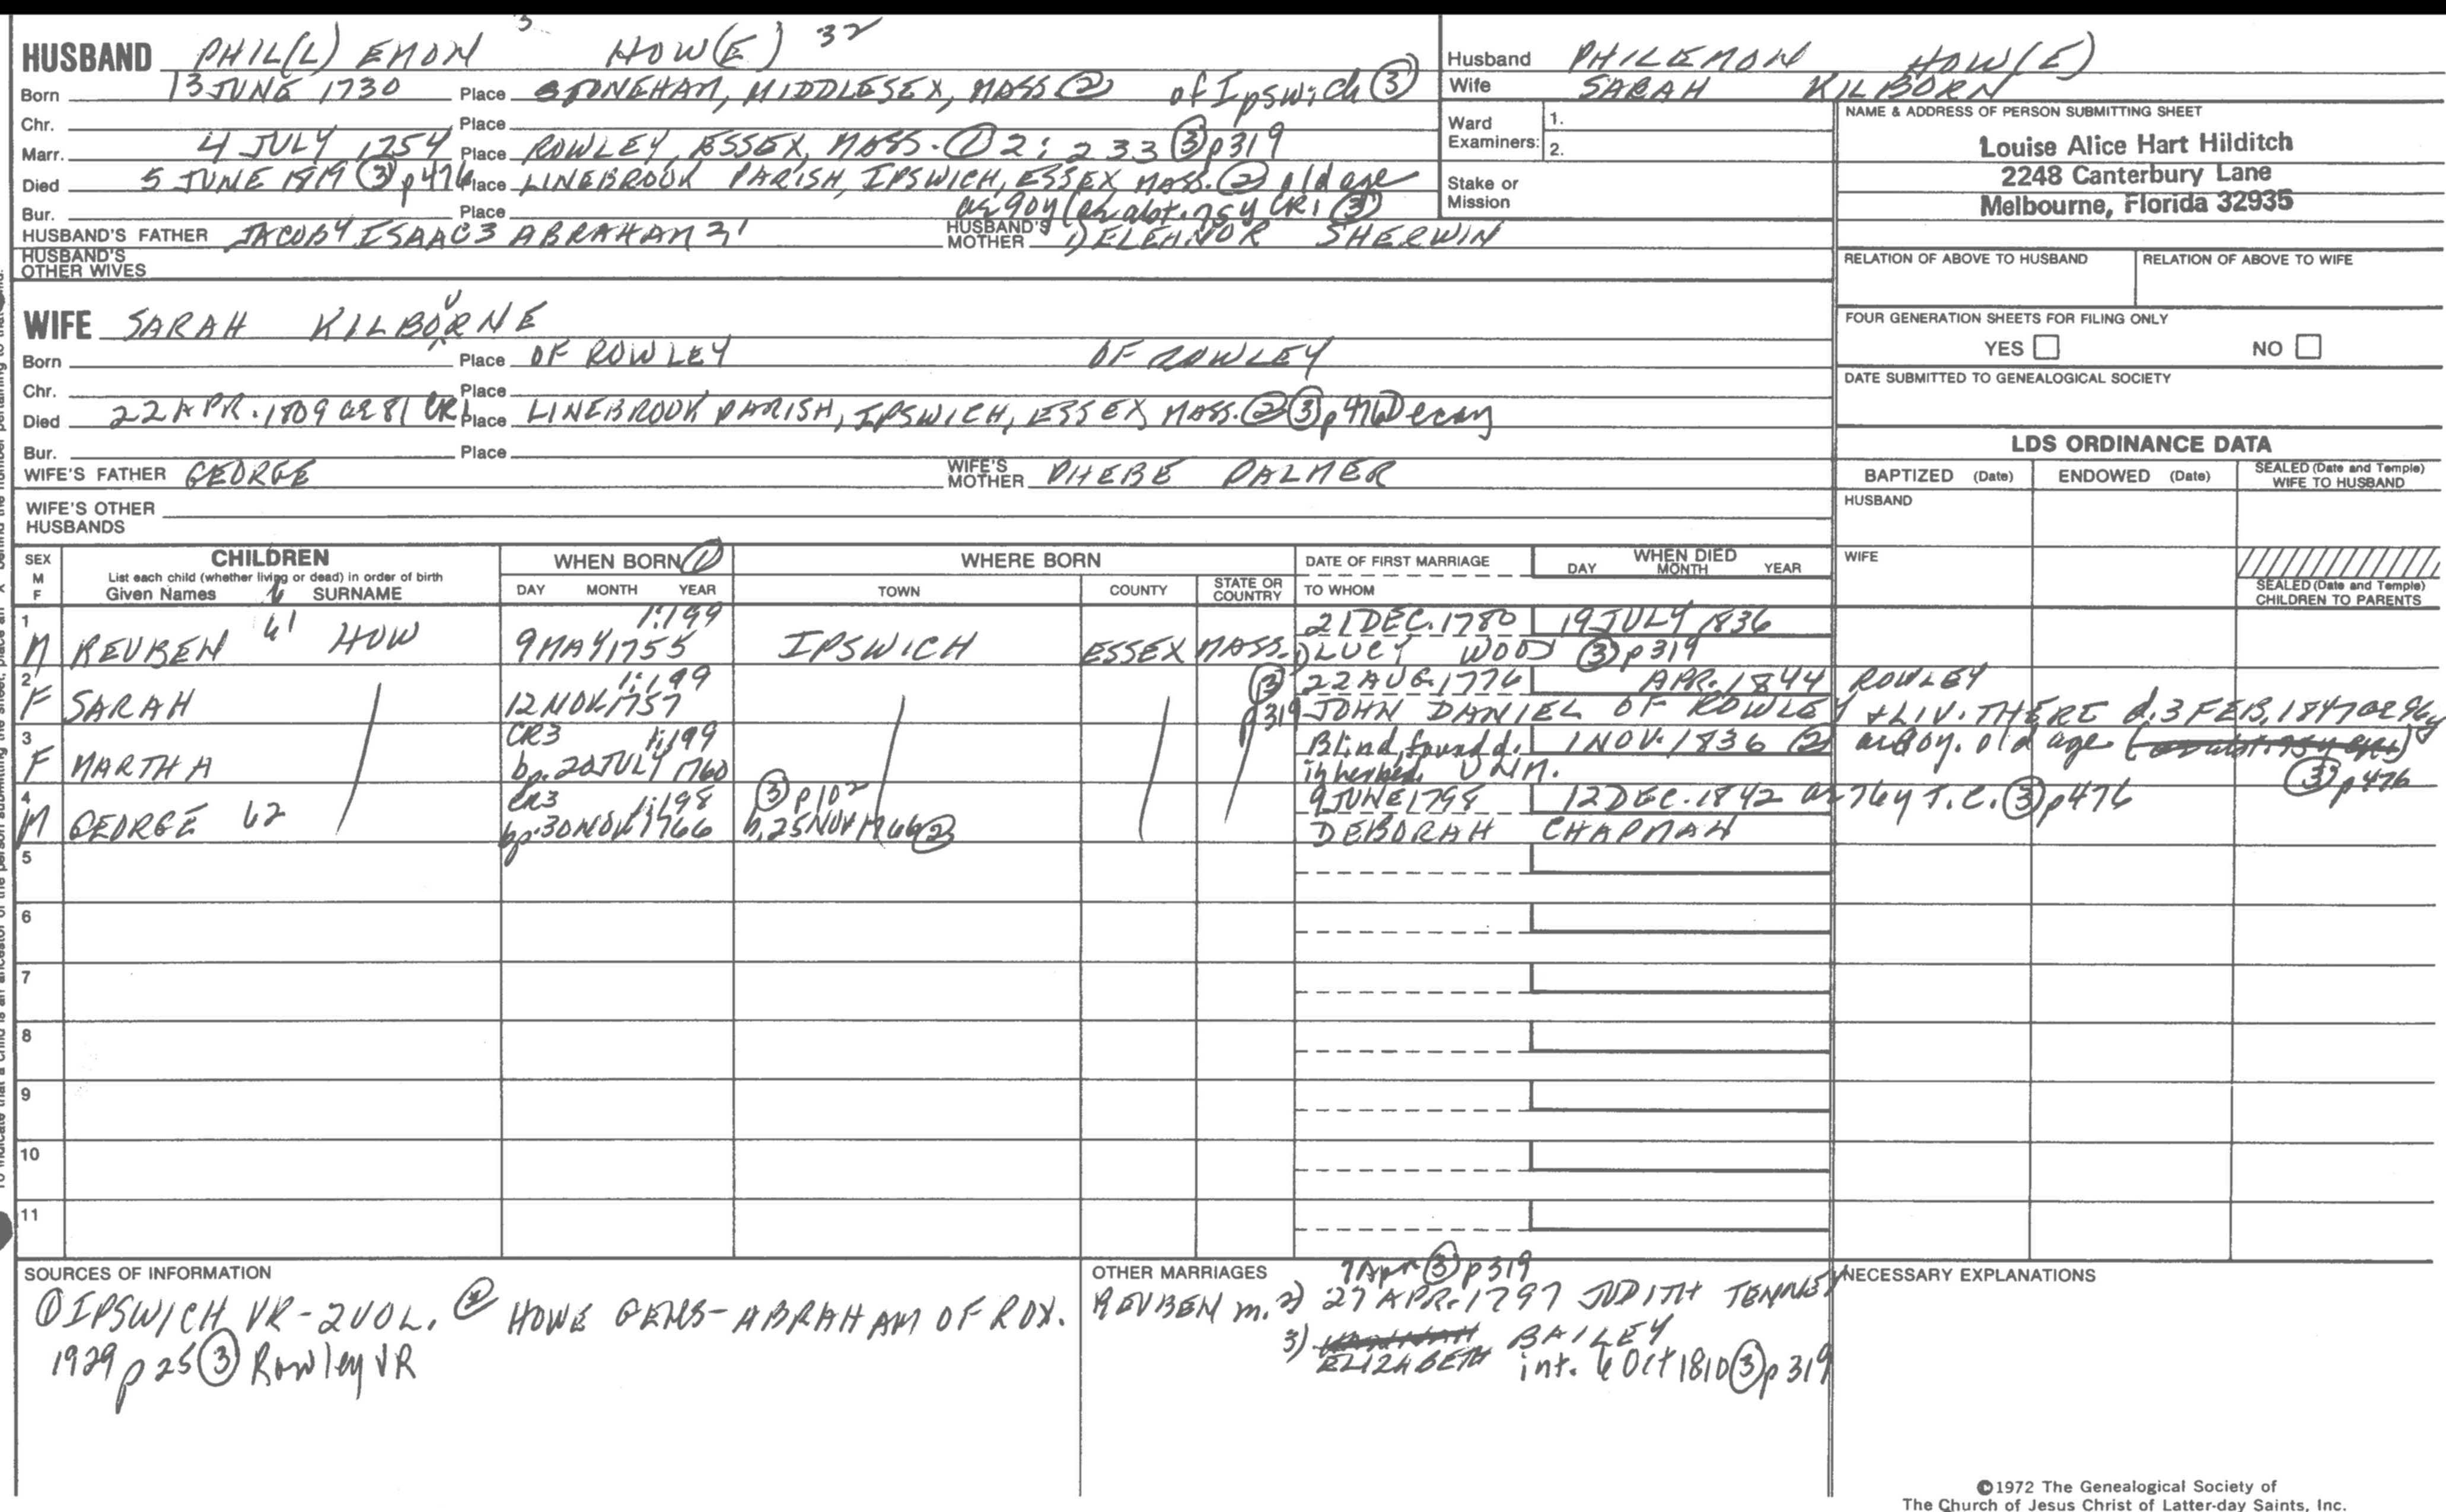 HUSBAND PHIL(L) EMON 3 HOW(E) 32
Born 13 JUNE 1730 Place STONEHAM, MIDDLESEX, MASS ② of Ipswich ③
Chr. Place
Marr. 4 JULY 1754 Place ROWLEY, ESSEX, MASS. ① 2: 233 ③ p319
Died 5 JUNE 1819 ③ p476 Place LINEBROOK PARISH, IPSWICH, ESSEX MASS. ② old age
Bur. Place ae 90y (ae abt. 95y CR1 ③
HUSBAND'S FATHER JACOB4 ISAAC3 ABRAHAM 2,1 HUSBAND'S MOTHER 1) ELEANOR SHERWIN
HUSBAND'S OTHER WIVES
Husband PHILEMON HOW(E)
Wife SARAH KILBORN
Ward Examiners: 1.
2.
Stake or Mission
NAME & ADDRESS OF PERSON SUBMITTING SHEET
Louise Alice Hart Hilditch
2248 Canterbury Lane
Melbourne, Florida 32935
RELATION OF ABOVE TO HUSBAND RELATION OF ABOVE TO WIFE
FOUR GENERATION SHEETS FOR FILING ONLY
YES NO
DATE SUBMITTED TO GENEALOGICAL SOCIETY
WIFE SARAH KILBORNE
Born Place OF ROWLEY OF ROWLEY
Chr. Place
Died 22 APR. 1809 ae 81 CR1 Place LINEBROOK PARISH, IPSWICH, ESSEX MASS. ② ③ p476 Decay
Bur. Place
WIFE'S FATHER GEORGE WIFE'S MOTHER PHEBE PALMER
WIFE'S OTHER HUSBANDS
LDS ORDINANCE DATA
BAPTIZED (Date) ENDOWED (Date) SEALED (Date and Temple) WIFE TO HUSBAND
HUSBAND
WIFE
SEALED (Date and Temple) CHILDREN TO PARENTS
SEX M F CHILDREN WHEN BORN ① WHERE BORN DATE OF FIRST MARRIAGE WHEN DIED
List each child (whether living or dead) in order of birth
Given Names SURNAME DAY MONTH YEAR TOWN COUNTY STATE OR COUNTRY TO WHOM DAY MONTH YEAR
1 1:199 21 DEC. 1780 19 JULY 1836
M REUBEN 61 HOW 9 MAY 1755 IPSWICH ESSEX MASS. 1) LUCY WOOD ③ p319
2 1:199 ③ 22 AUG. 1776 APR. 1844 ROWLEY
F SARAH 12 NOV. 1757 p319 JOHN DANIEL OF ROWLEY + LIV. THERE d. 3 FEB. 1847 ae 96y
3 CR3 1:199 Blind, found d. 1 NOV. 1836 ② ae 80y. old age
F MARTHA bp. 20 JULY 1760 in her bed. UNM. ③ p476
4 CR3 1:198 ③ p102 9 JUNE 1798 12 DEC. 1842 ae 76y T.C. ③ p476
M GEORGE 62 bp. 30 NOV. 1766 b. 25 NOV 1766 ② DEBORAH CHAPMAN
5
6
7
8
9
10
11
SOURCES OF INFORMATION
① IPSWICH VR - 2 VOL. ② HOWE GENS - ABRAHAM OF ROX.
1929 p25 ③ Rowley VR
OTHER MARRIAGES 7 Apr ③ p319
REUBEN m. 2) 27 APR. 1797 JUDITH TENNEY
3) HANNAH BAILEY
ELIZABETH int. 6 Oct 1810 ③ p319
NECESSARY EXPLANATIONS
©1972 The Genealogical Society of
The Church of Jesus Christ of Latter-day Saints, Inc.